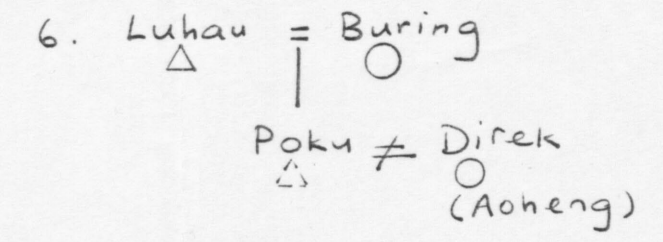 6. Luhau = Buring
Poku ≠ Direk
(Aoheng)